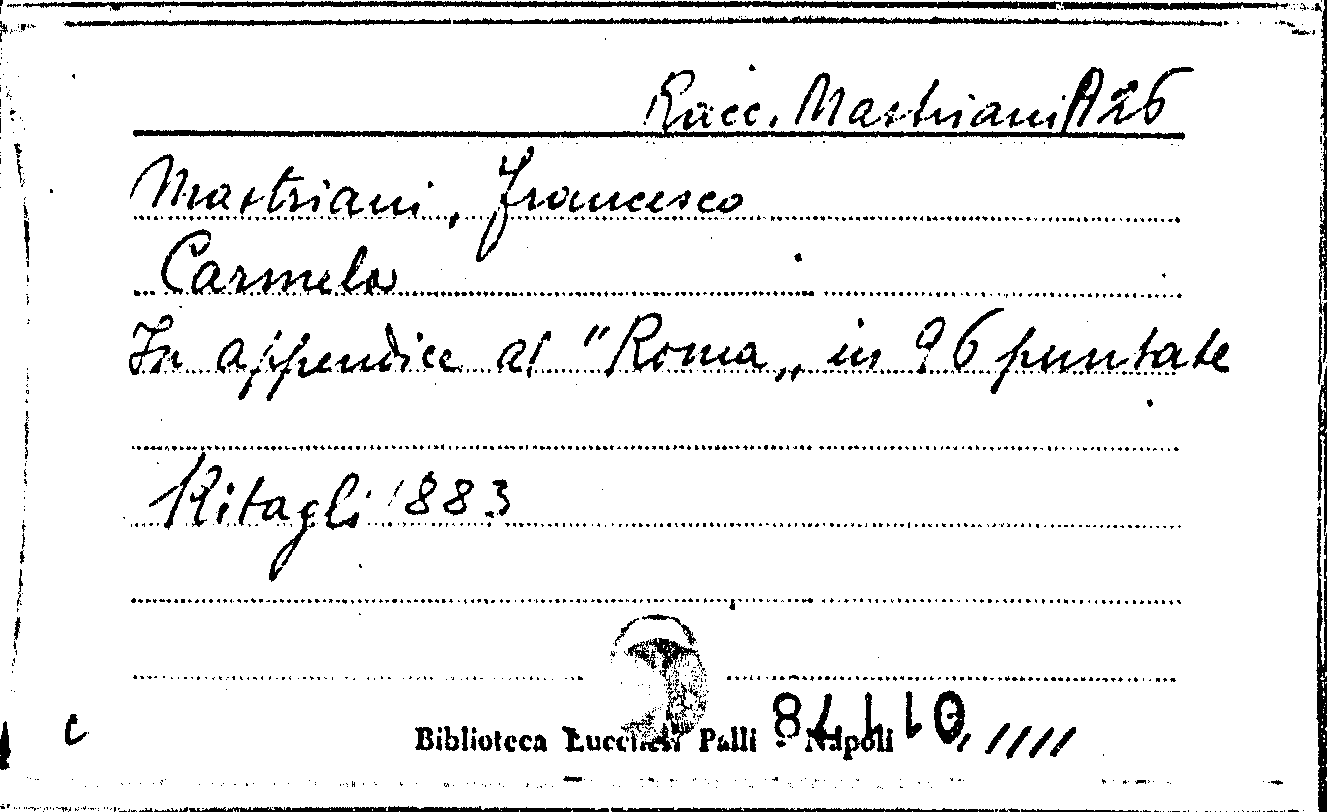 Racc. Mastriani A 26
Mastriani, Francesco
Carmela
In appendice al "Roma„ in 96 puntate
Ritagli 1883
Biblioteca Lucchesi Palli - Napoli
c